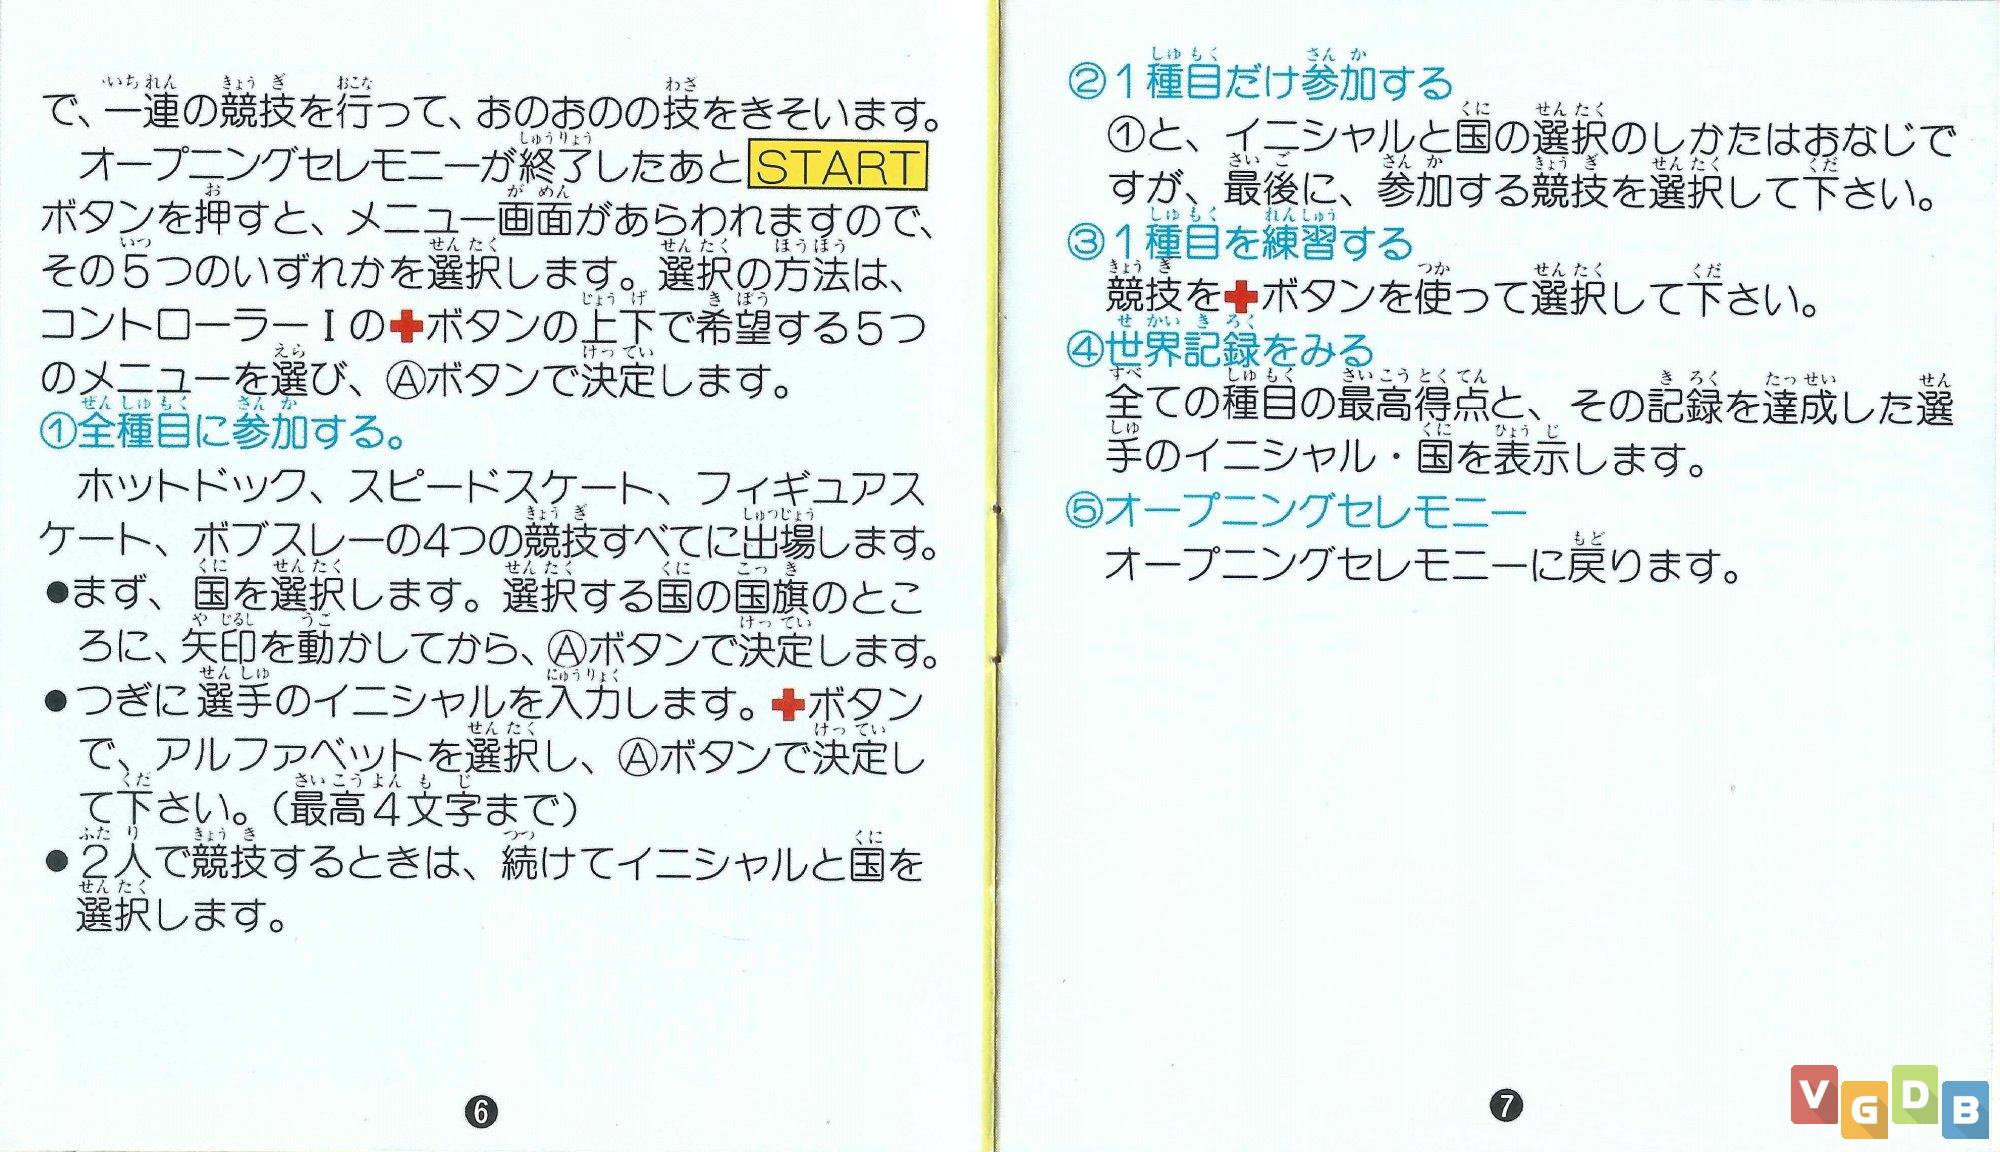 で、一連の競技を行って、おのおのの技をきそいます。
オープニングセレモニーが終了したあとSTART
ボタンを押すと、メニュー画面があらわれますので、
その5つのいずれかを選択します。選択の方法は、
コントローラーⅠの✚ボタンの上下で希望する5つ
のメニューを選び、Ⓐボタンで決定します。
①全種目に参加する。
ホットドック、スピードスケート、フィギュアス
ケート、ボブスレーの4つの競技すべてに出場します。
●まず、国を選択します。選択する国の国旗のとこ
ろに、矢印を動かしてから、Ⓐボタンで決定します。
●つぎに選手のイニシャルを入力します。✚ボタン
で、アルファベットを選択し、Ⓐボタンで決定し
て下さい。(最高4文字まで)
●2人で競技するときは、続けてイニシャルと国を
選択します。
6
②1種目だけ参加する
①と、イニシャルと国の選択のしかたはおなじで
すが、最後に、参加する競技を選択して下さい。
③1種目を練習する
競技を✚ボタンを使って選択して下さい。
④世界記録をみる
全ての種目の最高得点と、その記録を達成した選
手のイニシャル・国を表示します。
⑤オープニングセレモニー
オープニングセレモニーに戻ります。
7
VGDB